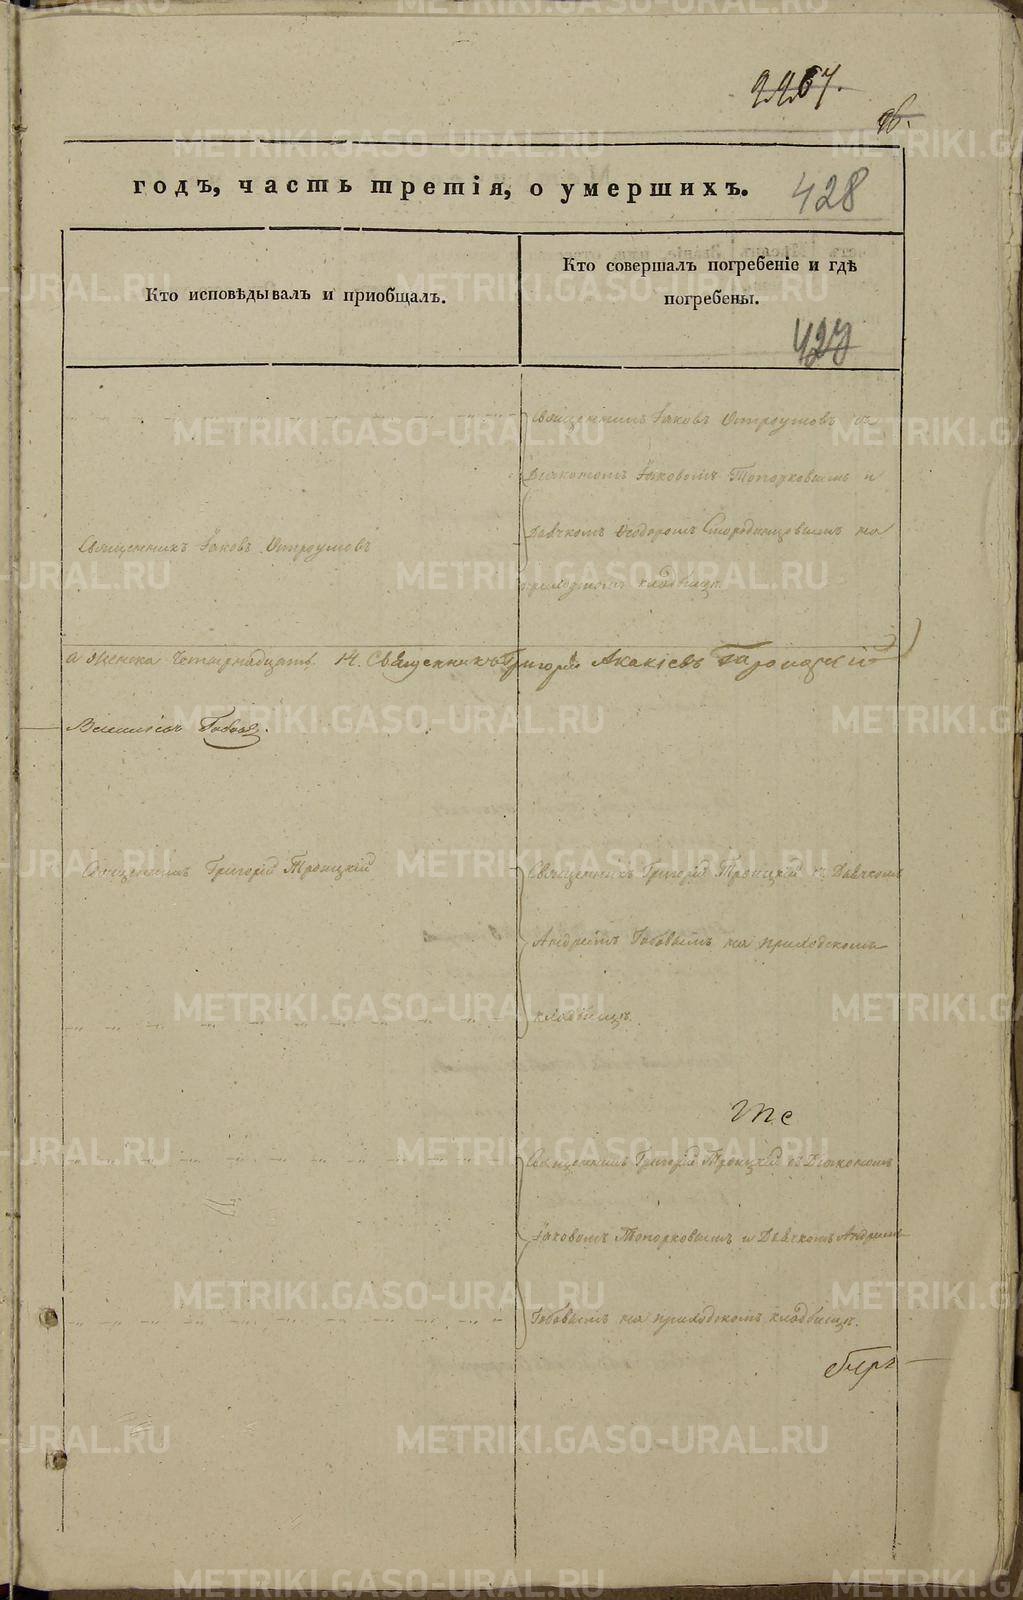 2267.
годъ, часть третія, о умершихъ.
428
Кто исповѣдывалъ и приобщалъ.
Кто совершалъ погребеніе и гдѣ
погребены.
427
Священникъ Іаковъ Остроумовъ съ
Діакономъ Іаковомъ Топорковымъ и
Священникъ Іаковъ Остроумовъ
Дьячкомъ Ѳеодоромъ Смородинцовымъ на
приходскомъ кладбищѣ.
а женска четырнадцать 14. Священникъ Григорій Акакіевъ Троицкій
Священникъ Григорій Троицкій
Священникъ Григорій Троицкій съ Дьячкомъ
Андреемъ Бобовымъ на приходскомъ
кладбищѣ.
Священникъ Григорій Троицкій съ Діакономъ
Іаковомъ Топорковымъ и Дьячкомъ Андреемъ
Бобовымъ на приходскомъ кладбищѣ.
METRIKI.GASO-URAL.RU